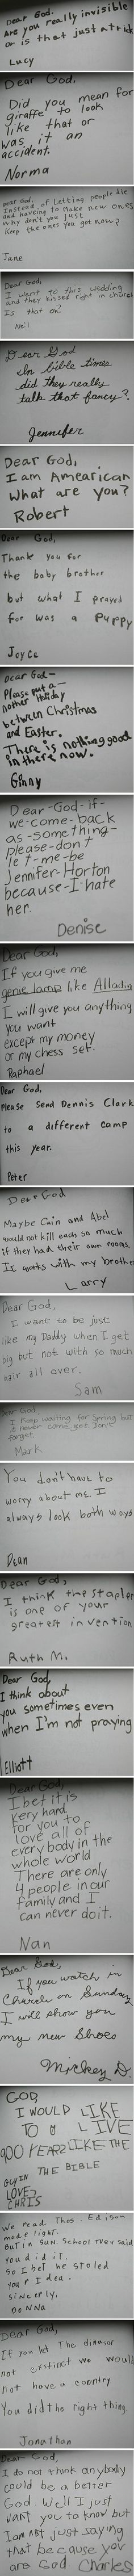 Dear God.
Are you really invisible
or is that just a trick
Lucy
Dear God,
Did you mean for
giraffe to look
like that or
was it an
accident.
Norma
Dear God,
Instead of letting people die
and haveing to make new ones
why don't you just
keep the ones you got now?
Jane
Dear God,
I went to this wedding
and they kissed right in church
Is that ok?
Neil
Dear God
In bible times
did they really
talk that fancy?
Jennifer
Dear God,
I am Amearican
What are you?
Robert
Dear God,
Thank you for
the baby brother
but what I prayed
for was a Puppy
Joyce
Dear God-
Please put a-
nother Holiday
between Christmas
and Easter.
There is nothing good
in there now.
Ginny
Dear-God-if-
we-come-back
as-something-
please-don't
let-me-be
Jennifer-Horton
because-I-hate
her.
Denise
Dear God,
If you give me
genie lamp like Alladin
I will give you anything
you want
except my money
or my chess set.
Raphael
Dear God,
Please Send Dennis Clark
to a different camp
this year.
Peter
Dear God
Maybe Cain and Abel
would not kill each so much
if they had their own rooms.
It works with my brother
Larry
Dear God,
I want to be just
like my Daddy when I get
big but not with so much
hair all over.
Sam
Dear God,
I keep waiting for Spring but
it never come yet. Don't
forget.
Mark
You don't have to
worry about me. I
always look both ways.
Dean
Dear God,
I think the stapler
is one of your
greatest invention
Ruth M.
Dear God,
I think about
you sometimes even
when I'm not praying
Elliott
Dear God,
I bet it is
very hard
for you to
love all of
every body in the
whole world
There are only
4 people in our
family and I
can never do it.
Nan
Dear God,
If you watch in
Church on Sunday
I will show you
my new Shoes
Mickey D.
GOD,
I WOULD LIKE
TO LIVE
900 YEARZ LIKE THE
GUY IN THE BIBLE
LOVE,
CHRIS
We read Thos. Edison
made light.
But in Sun. School they said
you did it.
So I bet he stoled
your Idea.
Sincerly,
Donna
Dear God,
If you let the dinasor
not exstinct we would
not have a country
You did the right thing.
Jonathan
Dear God,
I do not think anybody
could be a better
God. Well I just
want you to know but
I am not just saying
that because you
are God Charles